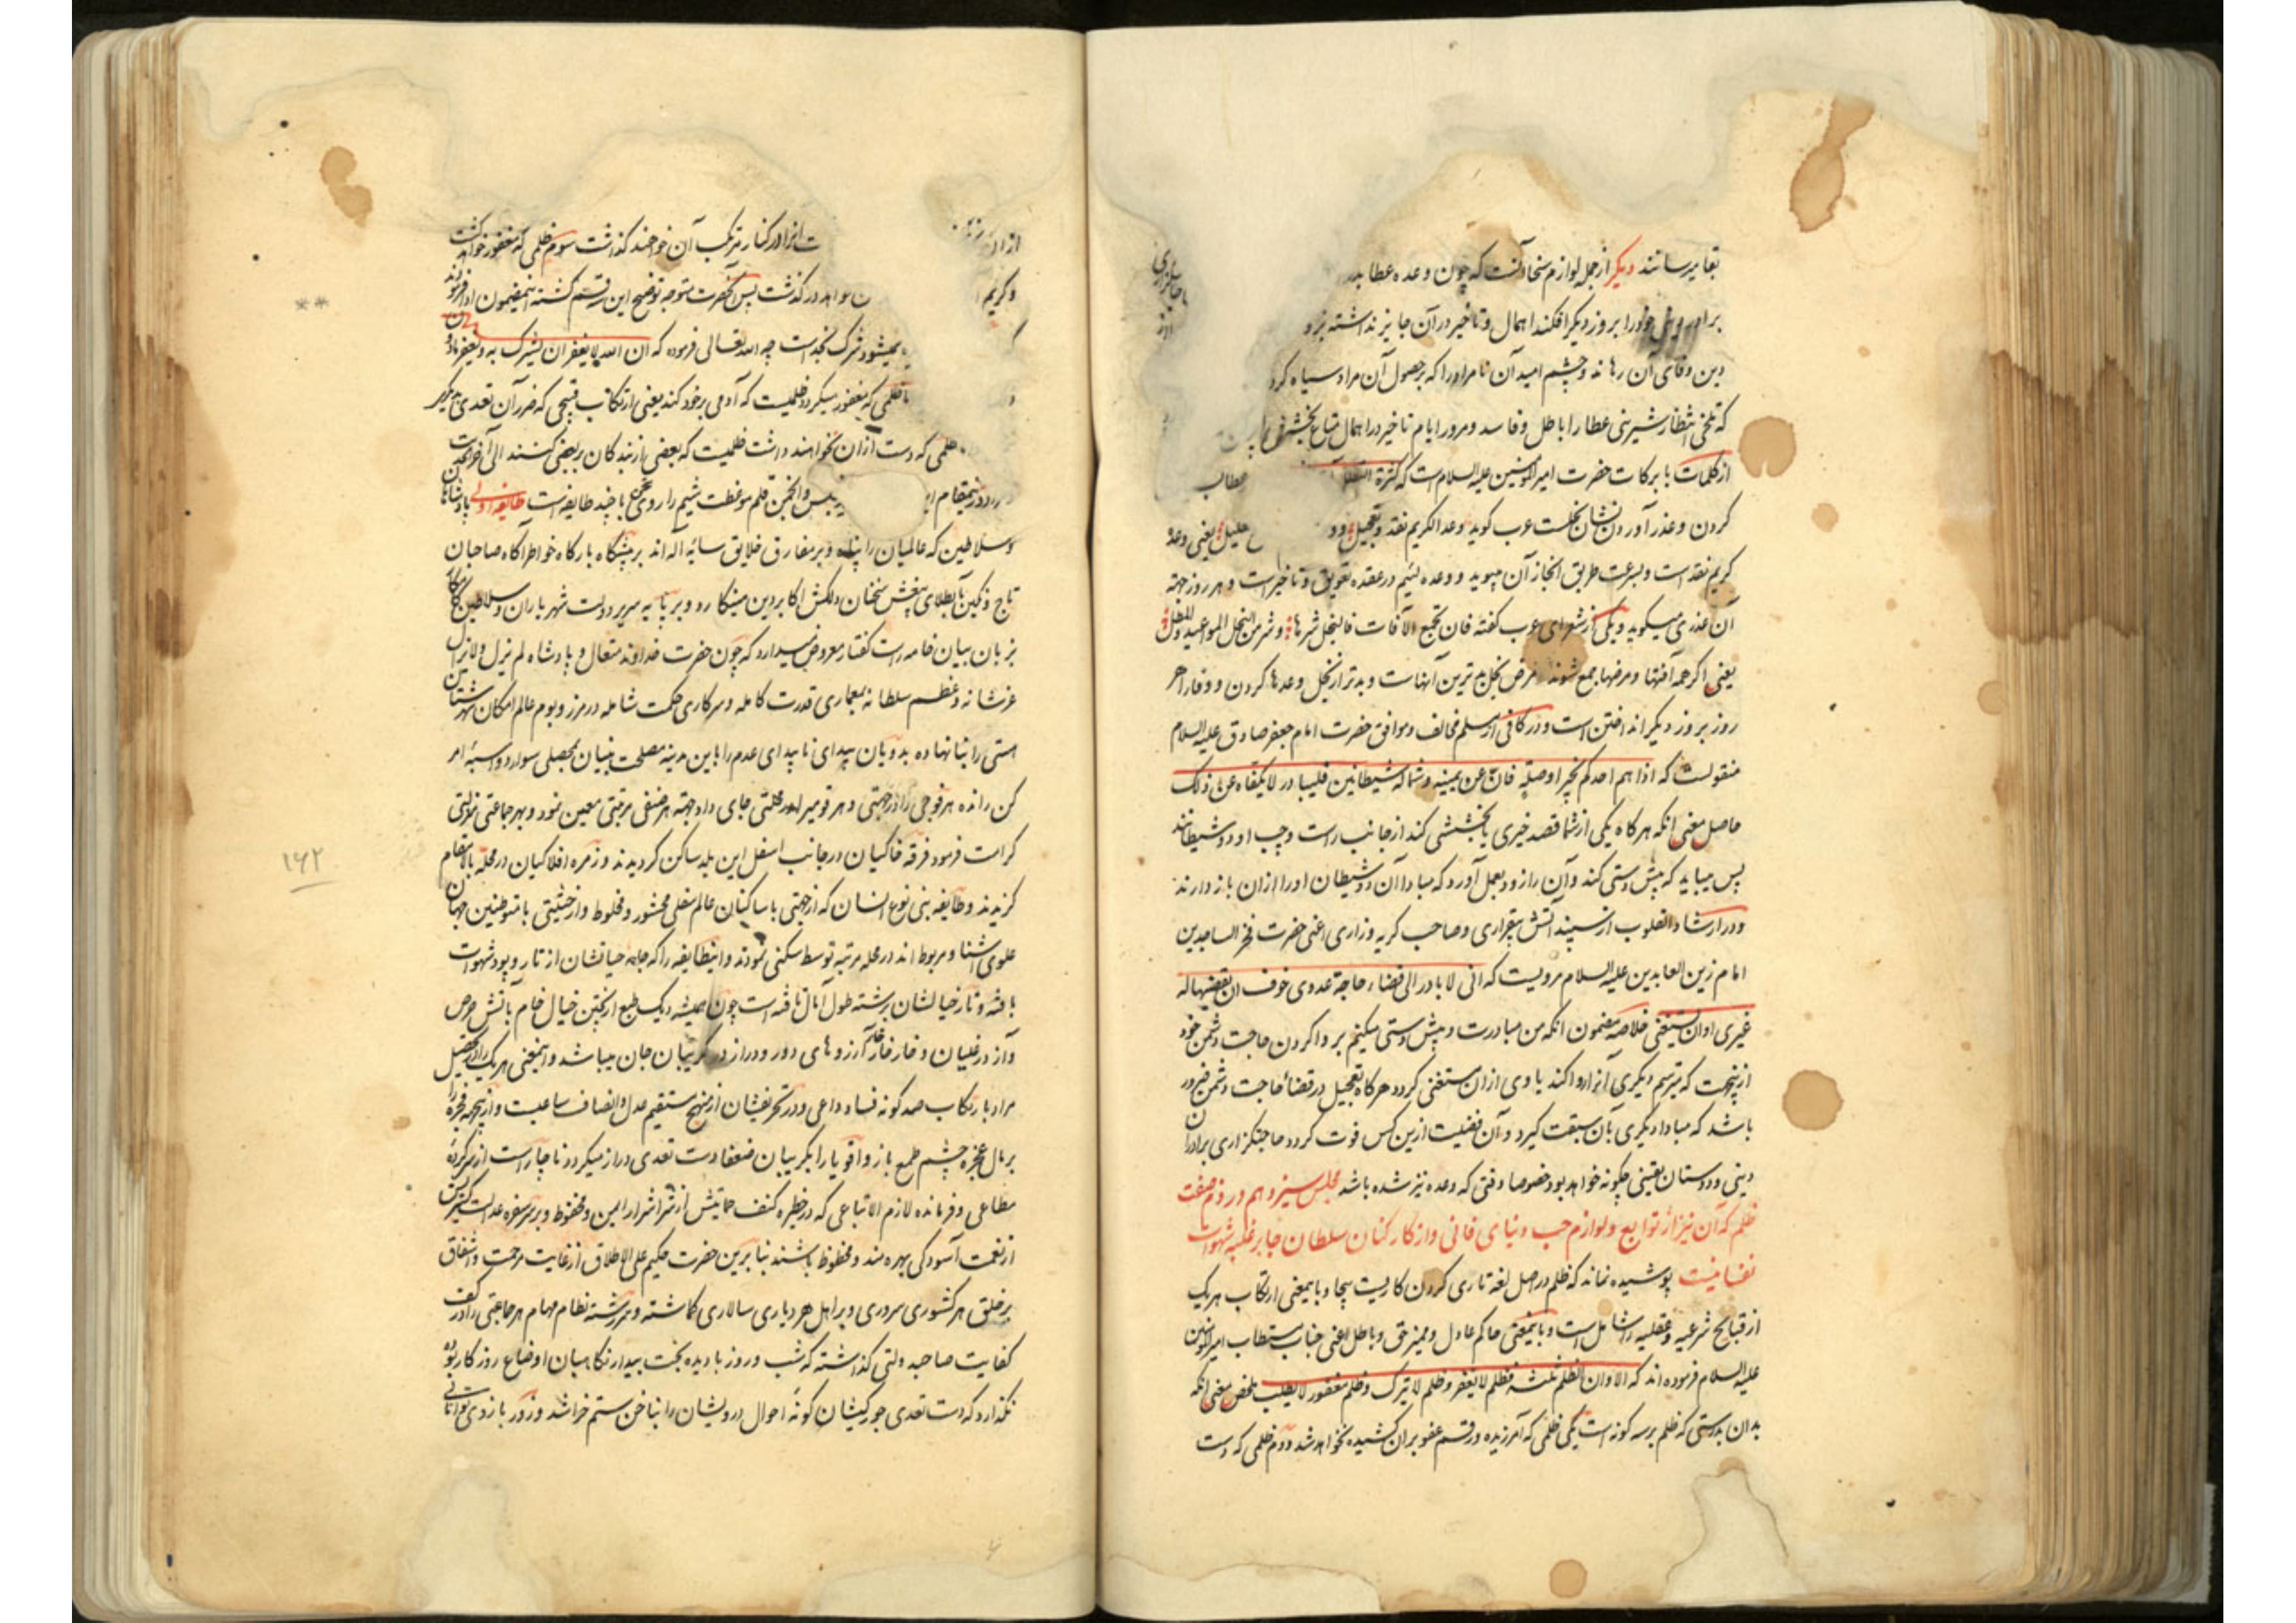 بقا میرسانند دیکر از جمله لوازم سخاوت آنست که چون وعده عطا بدر
را بروز دیکر افکند اهمال و تاخیر در آن جایز نداشته بزو
دین وفای آن رهاند و چشم امید آن نامراد را که بر حصول آن مراد سیاه کرد
که تلخی انتظار شیرینی عطا را باطل و فاسد و مرور ایام تاخیر در اهمال متاع بخشش
از کلمات با برکات حضرت امیر المومنین علیه السلام است که کثرة
کردن و عذر آوردن نشان بخلست عرب کوید وعد الکریم نقد و تعجیل یعنی وعده
کریم نقد است و بسرعت طریق انجاز آن میپوید و وعده لئیم در عقده تعویق و تاخیر است و هر روز جهة
آن عذری میکوید و یکی از شعرای عرب کفته فان تجمع الآفات فالبخل شرها و شر من البخل المواعید و المطل
یعنی اکر همه آفتها و مرضها جمع شوند مرض بخل بدترین آنهاست و بدتر از بخل وعدها کردن و وفا را هر
روز بروز دیکر انداختن است و در کافی از مسلم مخالف و موافق حضرت امام جعفر صادق علیه السلام
منقولست که اذا هم احدکم بخیر او صلة فان عن یمینه و شماله شیطانین فلیبادر لا یکفاه عن ذلک
حاصل معنی انکه هر کاه یکی از شما قصد خیری یا بخششی کند از جانب راست و چپ او دو شیطانند
پس میباید که پیش دستی کند و آن را زود بعمل آورد که مبادا آن دو شیطان او را از آن باز دارند
و در ارشاد القلوب از سپند آتش بیقراری و صاحب کریه و زاری اعنی حضرت فخر الساجدین
امام زین العابدین علیه السلام مرویست که انی لا بادر الی قضاء حاجة عدوی خوف ان یقضیها له
غیری او ان یستغنی خلاصه مضمون انکه من مبادرت و پیش دستی میکنم بر وا کردن حاجت دشمن خود
از اینجهت که میترسم دیکری آنرا روا کند یا وی از ان مستغنی کردد هر کاه تعجیل در قضاء حاجت دشمن ضرور
باشد که مبادا دیکری بآن سبقت کیرد و آن فضیلت ازین کس فوت کردد حاجتکزاری برادران
دینی و دوستان یقینی چکونه خواهد بود خصوصا وقتی که وعده نیز شده باشد مجلس سیزدهم در ذم صفت
ظلم که آن نیز از توابع و لوازم حب دنیای فانی و از کارکنان سلطان جابر غلبه شهوات
نفسانیست پوشیده نماند که ظلم در اصل لغة تاری کردن کاریست بیجا و باینمعنی ارتکاب هر یک
از قبایح شرعیه و عقلیه را شامل است و باینمعنی حاکم عادل و ممیز حق و باطل اعنی جناب مستطاب امیر المومنین
علیه السلام فرموده اند که الا و ان الظلم ثلثة فظلم لا یغفر و ظلم لا یترک و ظلم مغفور لا یطلب ملخص معنی انکه
بدان بدرستی که ظلم بر سه کونه است یکی ظلمی که آمرزیده و رقم عفو بر ان کشیده نخواهد شد دوم ظلمی که دست
از انرا در کنار مرتکب آن نخواهند کذاشت سوم ظلمی که مغفور خواهد کشت
و کریم در کذشت پس آنحضرت متوجه توضیح این سه قسم کشته اینمضمون ادا فرمودند
نمیشود شرک بخداست چه الله تعالی فرموده که ان الله لا یغفر ان یشرک به و یغفر مادون
ظلمی که مغفور میکردد ظلمیست که آدمی بر خود کند یعنی ارتکاب قبیحی که ضرر آن تعدی بدیکر
ظلمی که دست از ان نخواهند داشت ظلمیست که بعضی از بندکان ببعضی کنند الی آخر الحدیث
در اینمقام قلم موعظت شیم را روی سخن با چند طایفه است طایفه اولی پادشاهان
و سلاطین که عالمیان را پناه و بر مفارق خلایق سایه آله اند بر پیشکاه بارکاه خواطر آکاه صاحبان
تاج و نکین بطلای بیغش سخنان دلکش اکابر دین مینکارد و بر پایه سریر دولت شهریاران و سلاطین
بزبان بیان خامه راست کفتار معروض میدارد که چون حضرت خداوند متعال و پادشاه لم یزل و لا یزال
عز شانه و عظم سلطانه بمعماری قدرت کامله و سرکاری حکمت شامله در مرز و بوم عالم امکان شهرستان
هستی را بنا نهاده بدویان بیدای ناپیدای عدم را باین مدینه مصلحت بنیان بمحصلی سوار دو اسبه امر
کن رانده هر فوجی را در جهتی و هر قومیرا در محلتی جای داد جهة هر صنفی مرتبتی معین نمود و بهر جماعتی منزلتی
کرامت فرمود فرقه خاکیان در جانب اسفل این بلد ساکن کردیدند و زمره افلاکیان در محله بالا مقام
کزیدند و طایفه بنی نوع انسان که از جهتی با ساکنان عالم سفلی محشور و مخلوط و از حیثیتی با متوطنین جهان
علوی آشنا و مربوط اند در محله مرتبه توسط سکنی نمودند و اینطایفه را که جامه حیاتشان از تار و پود شهوات
بافته و تار خیالشان برشته طول آمال تافته است چون همیشه دیک طبع از پختن خیال خام بآتش حرص
و آز در غلیان و خار خار آرزوهای دور و دراز در کریبان جان میباشد و اینمعنی هر یک را در تحصیل
مراد بارتکاب صد کونه فساد داعی و در تحریفشان از منهج مستقیم عدل و انصاف ساعیست و از اینجهة فجره را
بر مال عجزه چشم طمع باز و اقویا را بکریبان ضعفا دست تعدی دراز میکردد ناچار است از سرکرده
مطاعی و فرمانده لازم الاتباعی که در حظیره کنف حمایتش از شر اشرار امین و محفوظ و بر سر سفره عدالت کسترش
از نعمت آسودکی بهره مند و محظوظ باشند بنا برین حضرت حکیم علی الاطلاق از غایت مرحمت و اشفاق
بر خلق هر کشوری سروری و بر اهل هر دیاری سالاری کماشته و سر رشته نظام مهام هر جماعتی را در کف
کفایت صاحب دولتی کذاشته که شب و روز با دیده بخت بیدار نکاهبان اوضاع روزکار بوده
نکذارد که دست تعدی جور کیشان کونه احوال درویشان را بناخن ستم خراشد و زور بازوی توانائی
۱۶۲